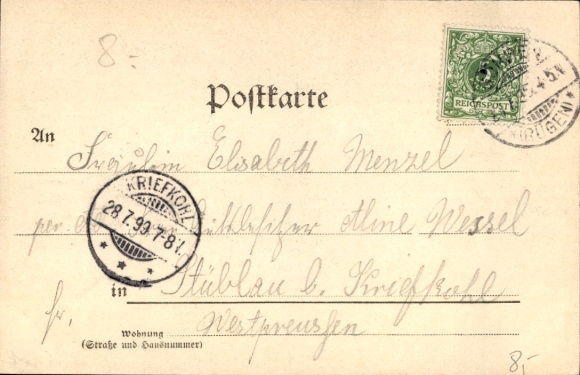 8.-
REICHSPOST
(RÜGEN)
Postkarte
An
Fräulein Elisabeth Menzel
KRIEFKOHL
28 7.99 7-8V.
per Aline Wessel
in Stüblau b. Kriefkohl
fr. Westpreussen
Wohnung
(Straße und Hausnummer)
8,-